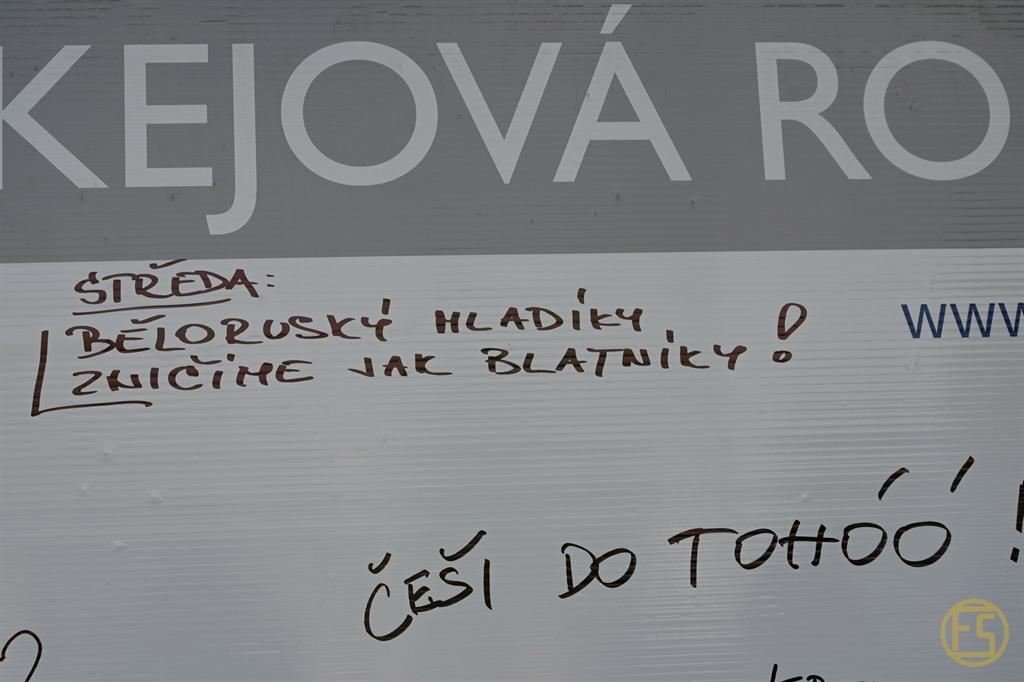 KEJOVÁ RO
STŘEDA:
BĚLORUSKÝ HLADÍKY
ZNIČÍME JAK BLATNÍKY!
WWW
ČEŠI DO TOHÓÓ!
FS